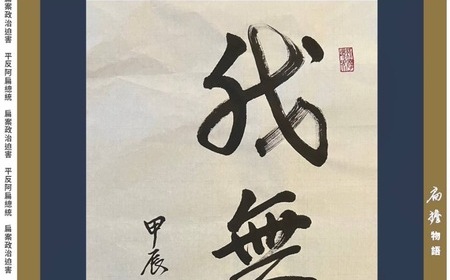 物語
我無
甲辰
扁案政治迫害 平反阿扁總統 扁案政治迫害 平反阿扁總統 扁案政治迫害